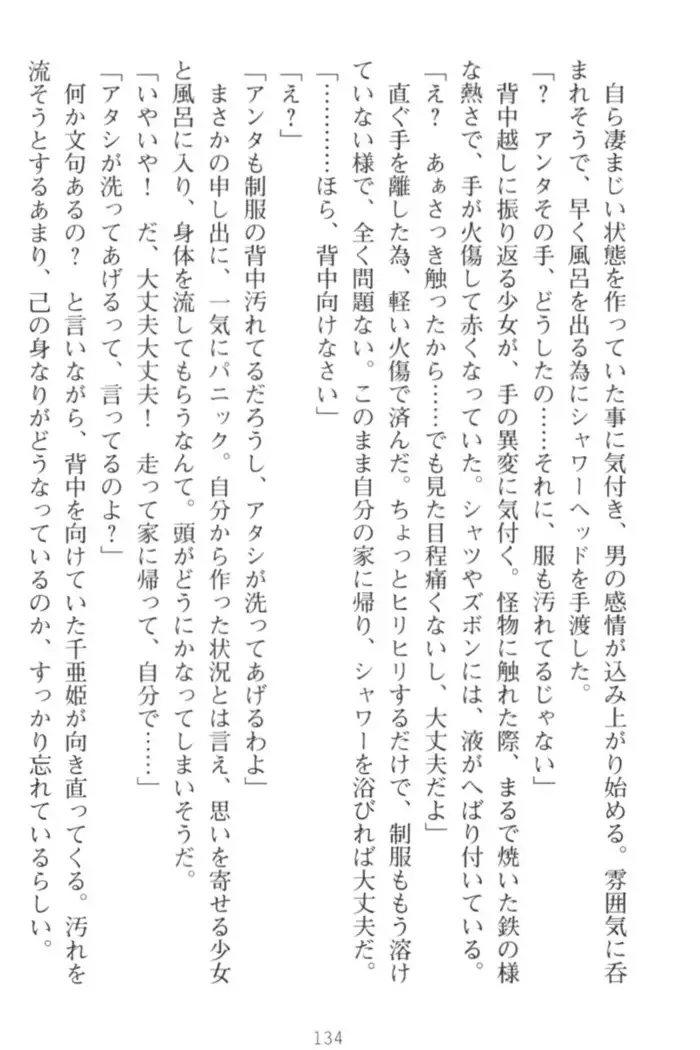 自ら凄まじい状態を作っていた事に気付き、男の感情が込み上がり始める。雰囲気に呑
まれそうで、早く風呂を出る為にシャワーヘッドを手渡した。
「?　アンタその手、どうしたの……それに、服も汚れてるじゃない」
背中越しに振り返る少女が、手の異変に気付く。怪物に触れた際、まるで焼いた鉄の様
な熱さで、手が火傷して赤くなっていた。シャツやズボンには、液がへばり付いている。
「え?　あぁさっき触ったから……でも見た目程痛くないし、大丈夫だよ」
直ぐ手を離した為、軽い火傷で済んだ。ちょっとヒリヒリするだけで、制服ももう溶け
ていない様で、全く問題ない。このまま自分の家に帰り、シャワーを浴びれば大丈夫だ。
「…………ほら、背中向けなさい」
「え?」
「アンタも制服の背中汚れてるだろうし、アタシが洗ってあげるわよ」
まさかの申し出に、一気にパニック。自分から作った状況とは言え、思いを寄せる少女
と風呂に入り、身体を流してもらうなんて。頭がどうにかなってしまいそうだ。
「いやいや!　だ、大丈夫大丈夫!　走って家に帰って、自分で……」
「アタシが洗ってあげるって、言ってるのよ?」
何か文句あるの?　と言いながら、背中を向けていた千亜姫が向き直ってくる。汚れを
流そうとするあまり、己の身なりがどうなっているのか、すっかり忘れているらしい。
134